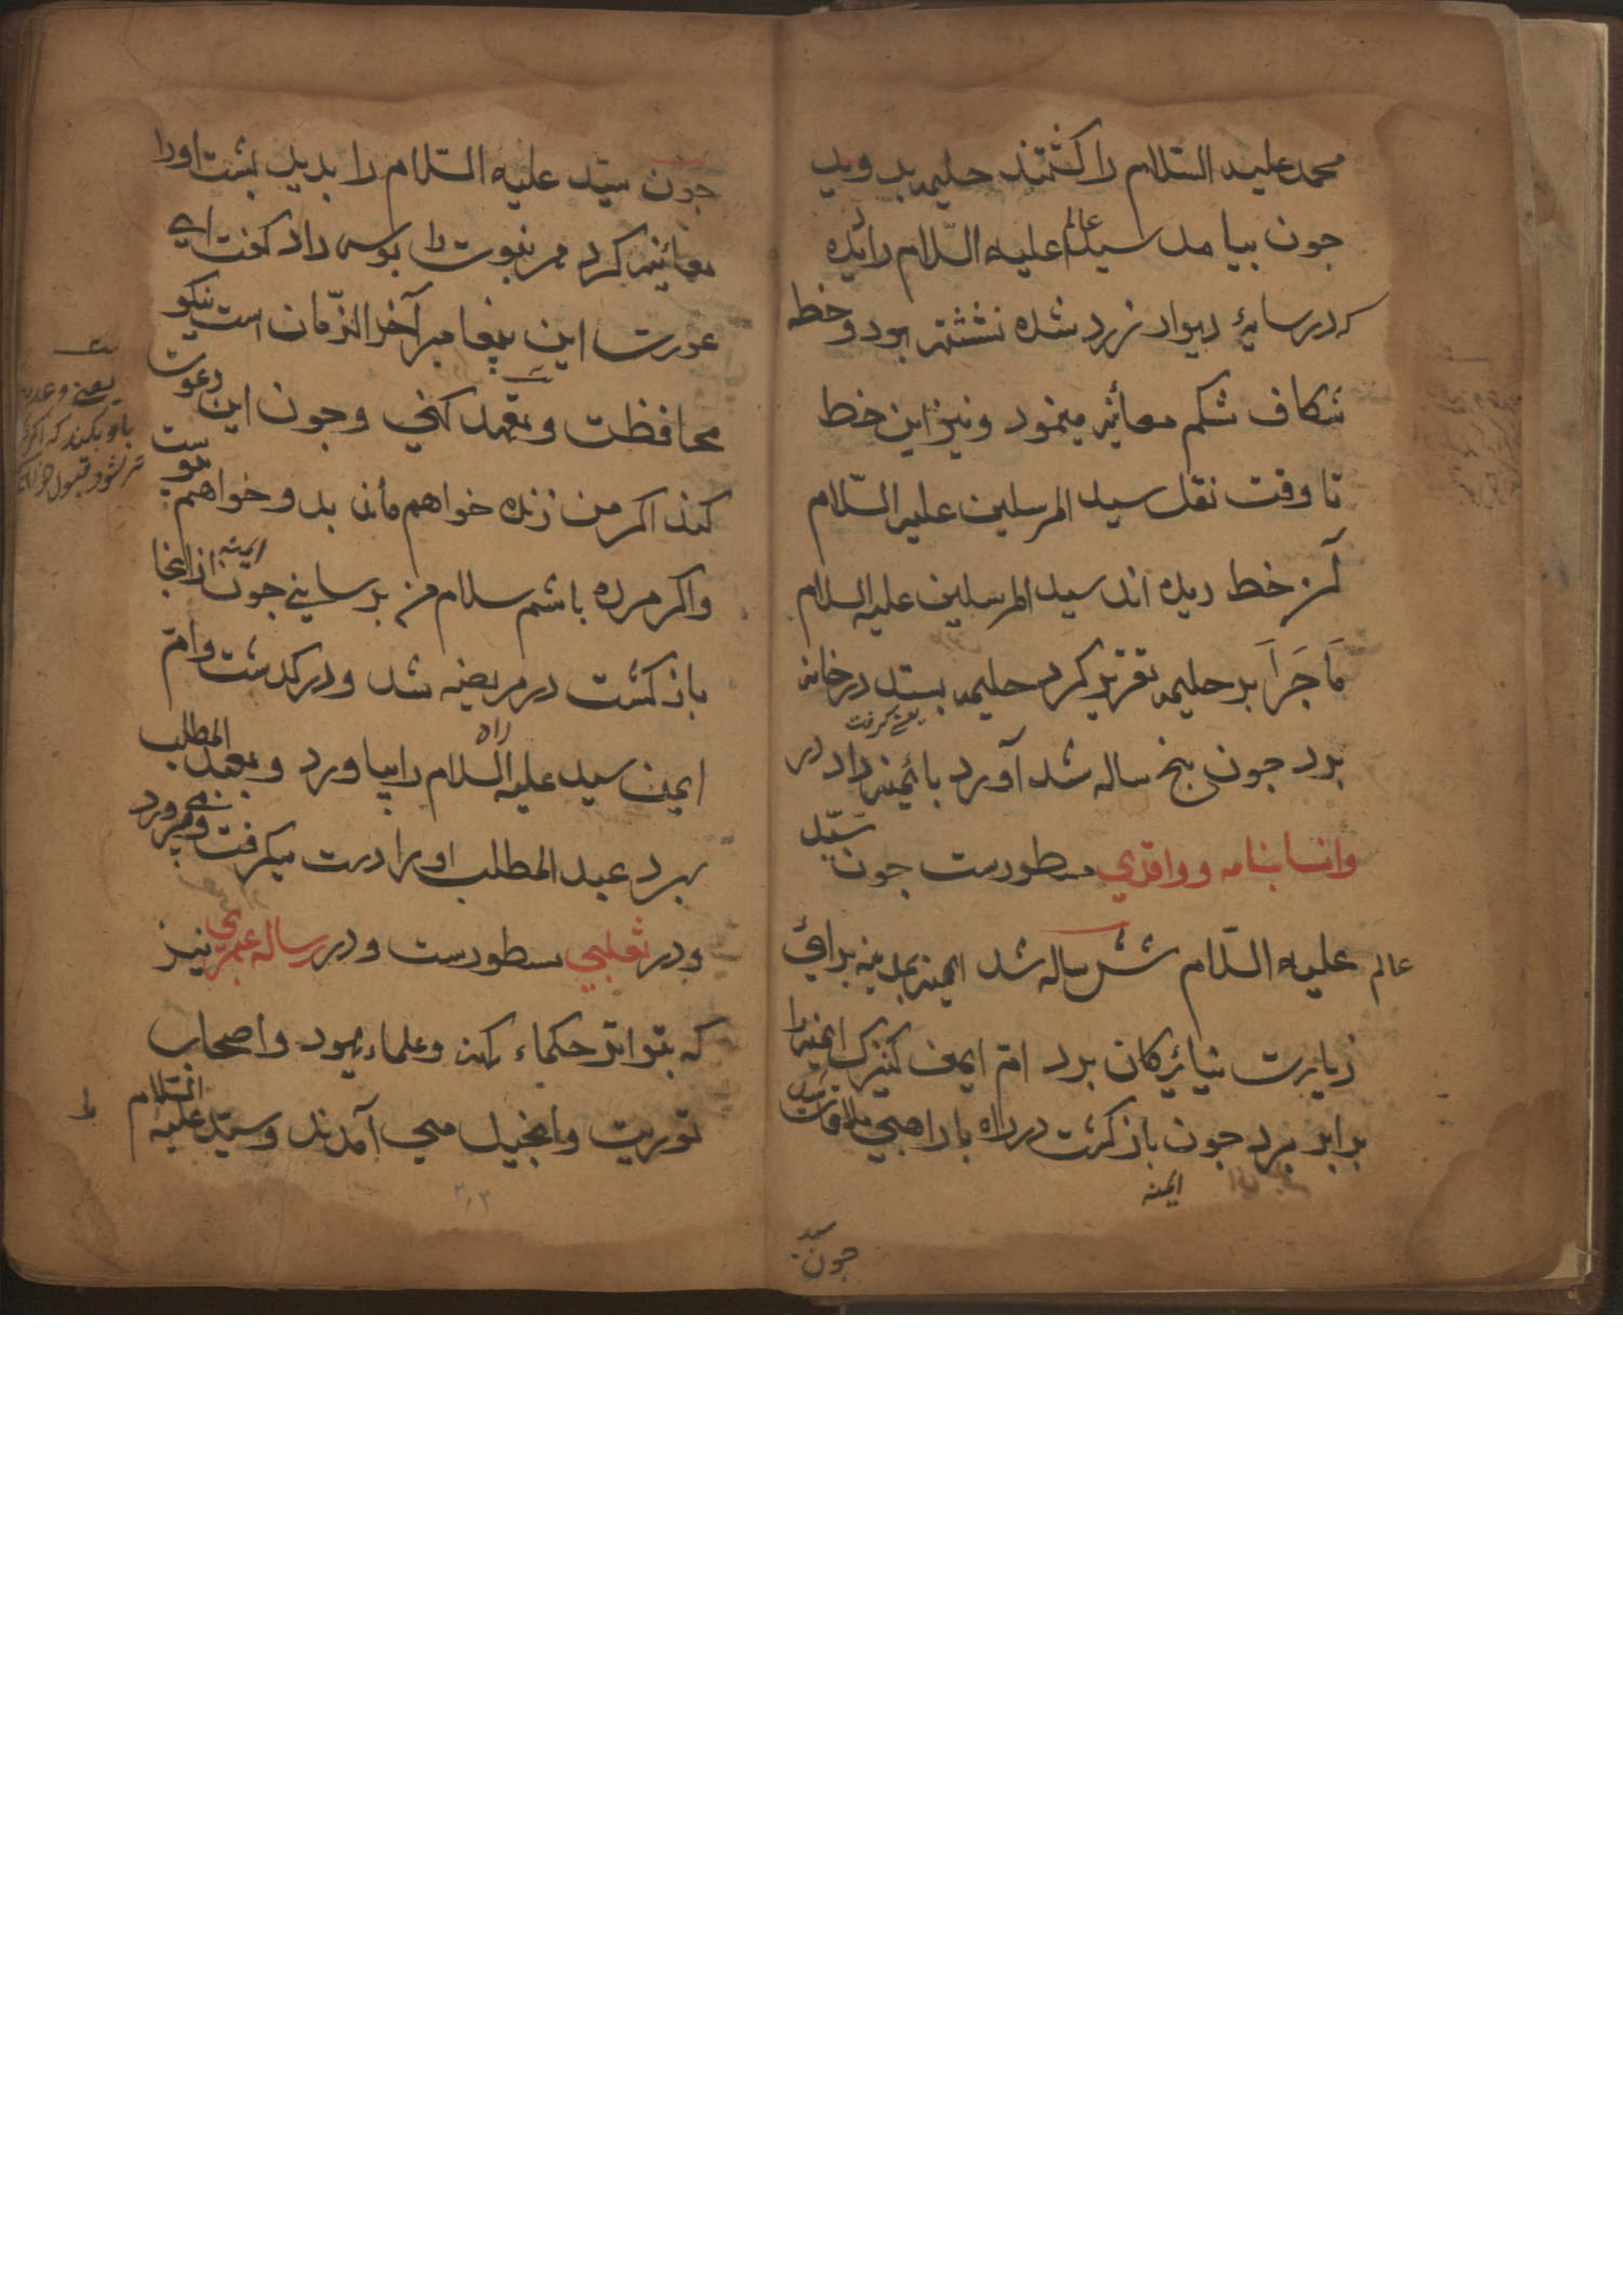 محمد علیه السّلام را کشتند حلیمه بدوید
جون بیامد سید عالم علیه السّلام را دیده
که در سایهٔ دیوار زرد شده نشسته بود و خط
شکاف شکم معائنه مینمود و نیز این خط
تا وقت نقل سید المرسلین علیه السّلام
خط دیده اند سید المرسلین علیه السلام
مَا جَرَا بر حلیمه تقریر کرد حلیمه بستد در خانه
یعنے کرفت
برد جون پنج ساله شد آورد بائمنه داد در
وانسابنامه و واقدي مسطورست جون سیّد
عالم علیه السّلام شش ساله شد ایمنه بمدینه برائ
زیارت نیائرکان برد ام ایمن کنیزک ایمنه را
برابر برد جون باز کشت در راه با راهبي ملاقات شد
ایمنه
جون سید
جون سیّد علیه السّلام را بدید بشت او را
معائنه کرد مهر نبوت را بوسه داد کفت اے
عورت این پیغامبر آخر الزّمان است نیکو
محافظت و تعهد کني و جون این دعوت نبوت
کند اکر من زنده خواهم ماند بدو خواهم پیوست
و اکر مرده باشم سلام من برسانے جون ایمنه از انجا
باز کشت در مریضه شد و در کدشت و ام
راه
ایمن سید علیه السّلام را بیاورد و بعبد المطلب
سپرد عبد المطلب او را درست میکرفت و می پرورد
و در ثعلبي مسطورست و در رساله عمري نیز
که بتواتر حکماء کهنه و علماء یهود و اصحاب
توریت و انجیل مي آمدند و سیّد علیه السّلام
یعنے وعده
باو بکند که اکر